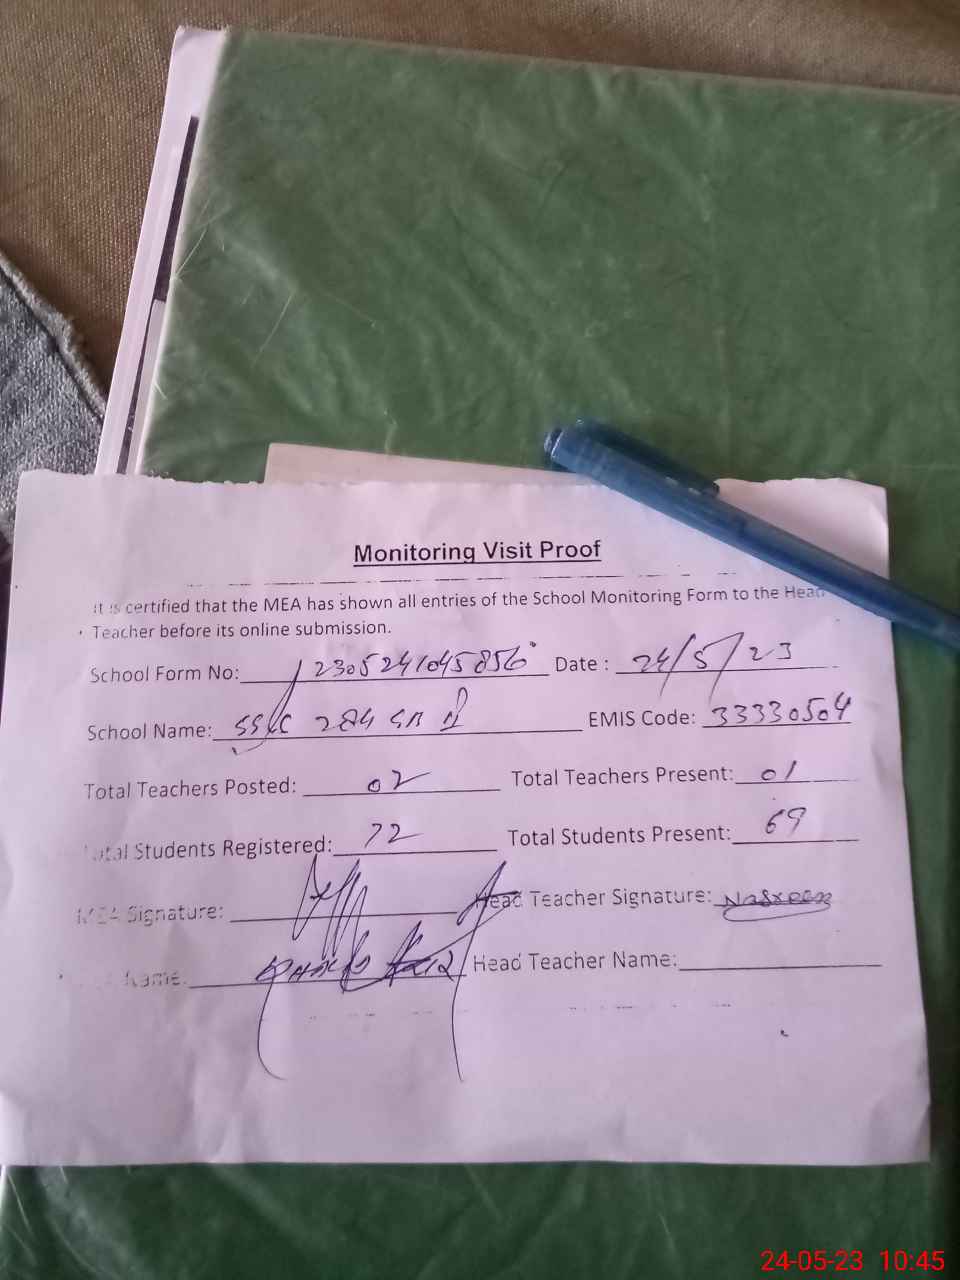 Monitoring Visit Proof
It is certified that the MEA has shown all entries of the School Monitoring Form to the Head
Teacher before its online submission.
School Form No: 2305241045856 Date : 24/5/23
School Name: 284 GB II EMIS Code: 33330504
Total Teachers Posted: 02 Total Teachers Present: 01
Total Students Registered: 72 Total Students Present: 69
MEA Signature: Head Teacher Signature: Nasreen
Name: Head Teacher Name:
24-05-23 10:45